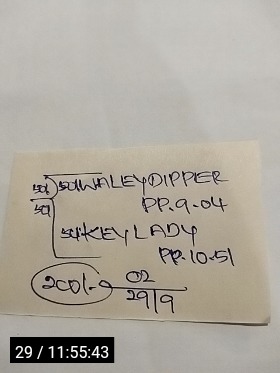 50) 50 WALEY DIPPER
PP. 9-04
50
50 KEY LADY
PP. 10-51
200/- 02
29/9
29 / 11:55:43